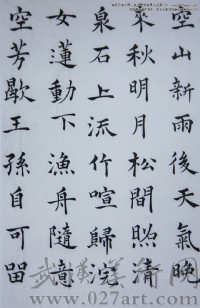 空山新雨後天氣晚
來秋明月松間照清
泉石上流竹喧歸浣
女蓮動下漁舟隨意
空芳歇王孫自可留
www.027art.com